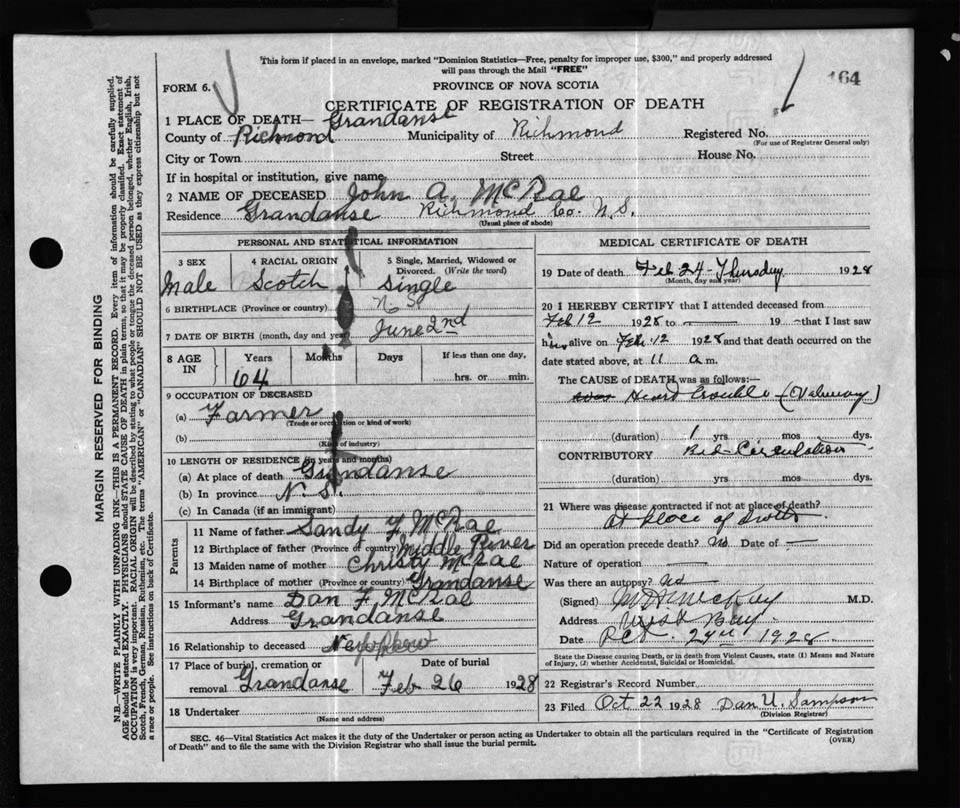 This form if placed in an envelope, marked "Dominion Statistics—Free, penalty for improper use, $300," and properly addressed
will pass through the Mail "FREE"
164
FORM 6.
PROVINCE OF NOVA SCOTIA
CERTIFICATE OF REGISTRATION OF DEATH
1 PLACE OF DEATH— Grandanse
County of Richmond Municipality of Richmond Registered No.
(For use of Registrar General only)
City or Town Street House No.
If in hospital or institution, give name
2 NAME OF DECEASED John A. McRae
Residence Grandanse Richmond Co. N.S.
(Usual place of abode)
PERSONAL AND STATISTICAL INFORMATION
3 SEX 4 RACIAL ORIGIN 5 Single, Married, Widowed or
Divorced. (Write the word)
Male Scotch Single
6 BIRTHPLACE (Province or country) N.S.
7 DATE OF BIRTH (month, day and year) June 2nd
8 AGE IN Years Months Days If less than one day,
64 hrs. or min.
9 OCCUPATION OF DECEASED
(a) Farmer
(Trade or occupation or kind of work)
(b)
(Kind of industry)
10 LENGTH OF RESIDENCE (in years and months)
(a) At place of death Grandanse
(b) In province N.S.
(c) In Canada (if an immigrant)
Parents
11 Name of father Sandy F McRae
12 Birthplace of father (Province or country) Middle River
13 Maiden name of mother Christy McRae
14 Birthplace of mother (Province or country) Grandanse
15 Informant's name Dan F McRae
Address Grandanse
16 Relationship to deceased Nephew
17 Place of burial, cremation or Date of burial
removal Grandanse Feb 26 1928
18 Undertaker
(Name and address)
MEDICAL CERTIFICATE OF DEATH
19 Date of death Feb 24 - Thursday 1928
(Month, day and year)
20 I HEREBY CERTIFY that I attended deceased from
Feb 12 1928 to — 19 — that I last saw
him alive on Feb. 12 1928 and that death occurred on the
date stated above, at 11 a m.
The CAUSE OF DEATH was as follows:—
Heart trouble - (Valvular)
(duration) 1 yrs mos dys.
CONTRIBUTORY Bad Circulation
(duration) yrs mos dys.
21 Where was disease contracted if not at place of death?
At place of death
Did an operation precede death? No Date of —
Nature of operation —
Was there an autopsy? No
(Signed) M.D.
Address West Bay
Date Oct. 24th 1928
State the Disease causing Death, or in death from Violent Causes, state (1) Means and Nature
of Injury, (2) whether Accidental, Suicidal or Homicidal.
22 Registrar's Record Number
23 Filed Oct 22 1928 Dan U. Sampson
(Division Registrar)
SEC. 46—Vital Statistics Act makes it the duty of the Undertaker or person acting as Undertaker to obtain all the particulars required in the "Certificate of Registration
of Death" and to file the same with the Division Registrar who shall issue the burial permit.
(OVER)
MARGIN RESERVED FOR BINDING
N.B.—WRITE PLAINLY WITH UNFADING INK—THIS IS A PERMANENT RECORD. Every item of information should be carefully supplied.
AGE should be stated EXACTLY. PHYSICIANS should STATE CAUSE OF DEATH in plain terms, so that it may be properly classified. Exact statement of
OCCUPATION is very important. RACIAL ORIGIN will be described by stating to what people or tongue the deceased person belonged, whether English, Irish,
Scotch, French, German, Russian, Ruthenian, etc. The terms "AMERICAN" or "CANADIAN" SHOULD NOT BE USED as they express citizenship but not
a race or people. See instructions on back of Certificate.